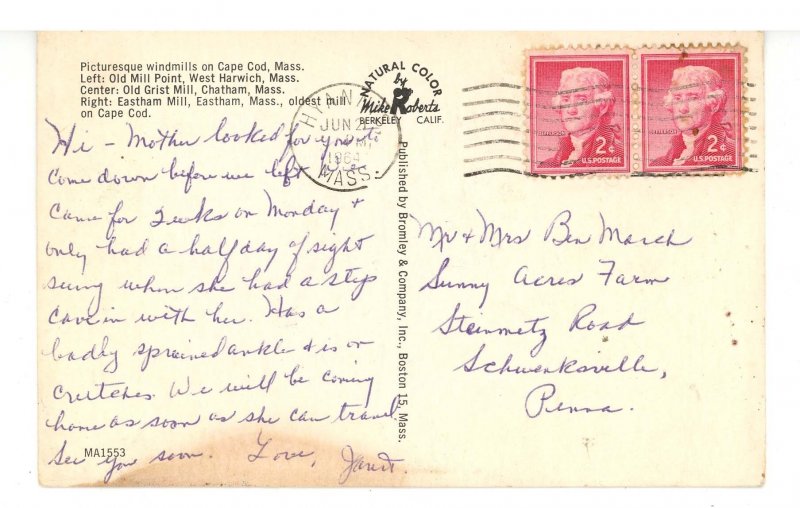 Picturesque windmills on Cape Cod, Mass.
Left: Old Mill Point, West Harwich, Mass.
Center: Old Grist Mill, Chatham, Mass.
Right: Eastham Mill, Eastham, Mass., oldest mill
on Cape Cod.
Hi - Mother looked for you to
come down before we left. We
came for 2 wks on Monday +
only had a half day of sight
seeing when she had a step
cave in with her. Has a
badly sprained ankle + is on
crutches. We will be coming
home as soon as she can travel.
See you soon. Love, Janet.
MA1553
NATURAL COLOR
by
Mike Roberts
BERKELEY CALIF.
HYANNIS
JUN 2
1964
MASS.
Published by Bromley & Company, Inc., Boston 15, Mass.
JEFFERSON
2¢
U.S. POSTAGE
JEFFERSON
2¢
U.S. POSTAGE
Mr + Mrs Ben March
Sunny Acres Farm
Steinmetz Road
Schwenksville,
Penna.